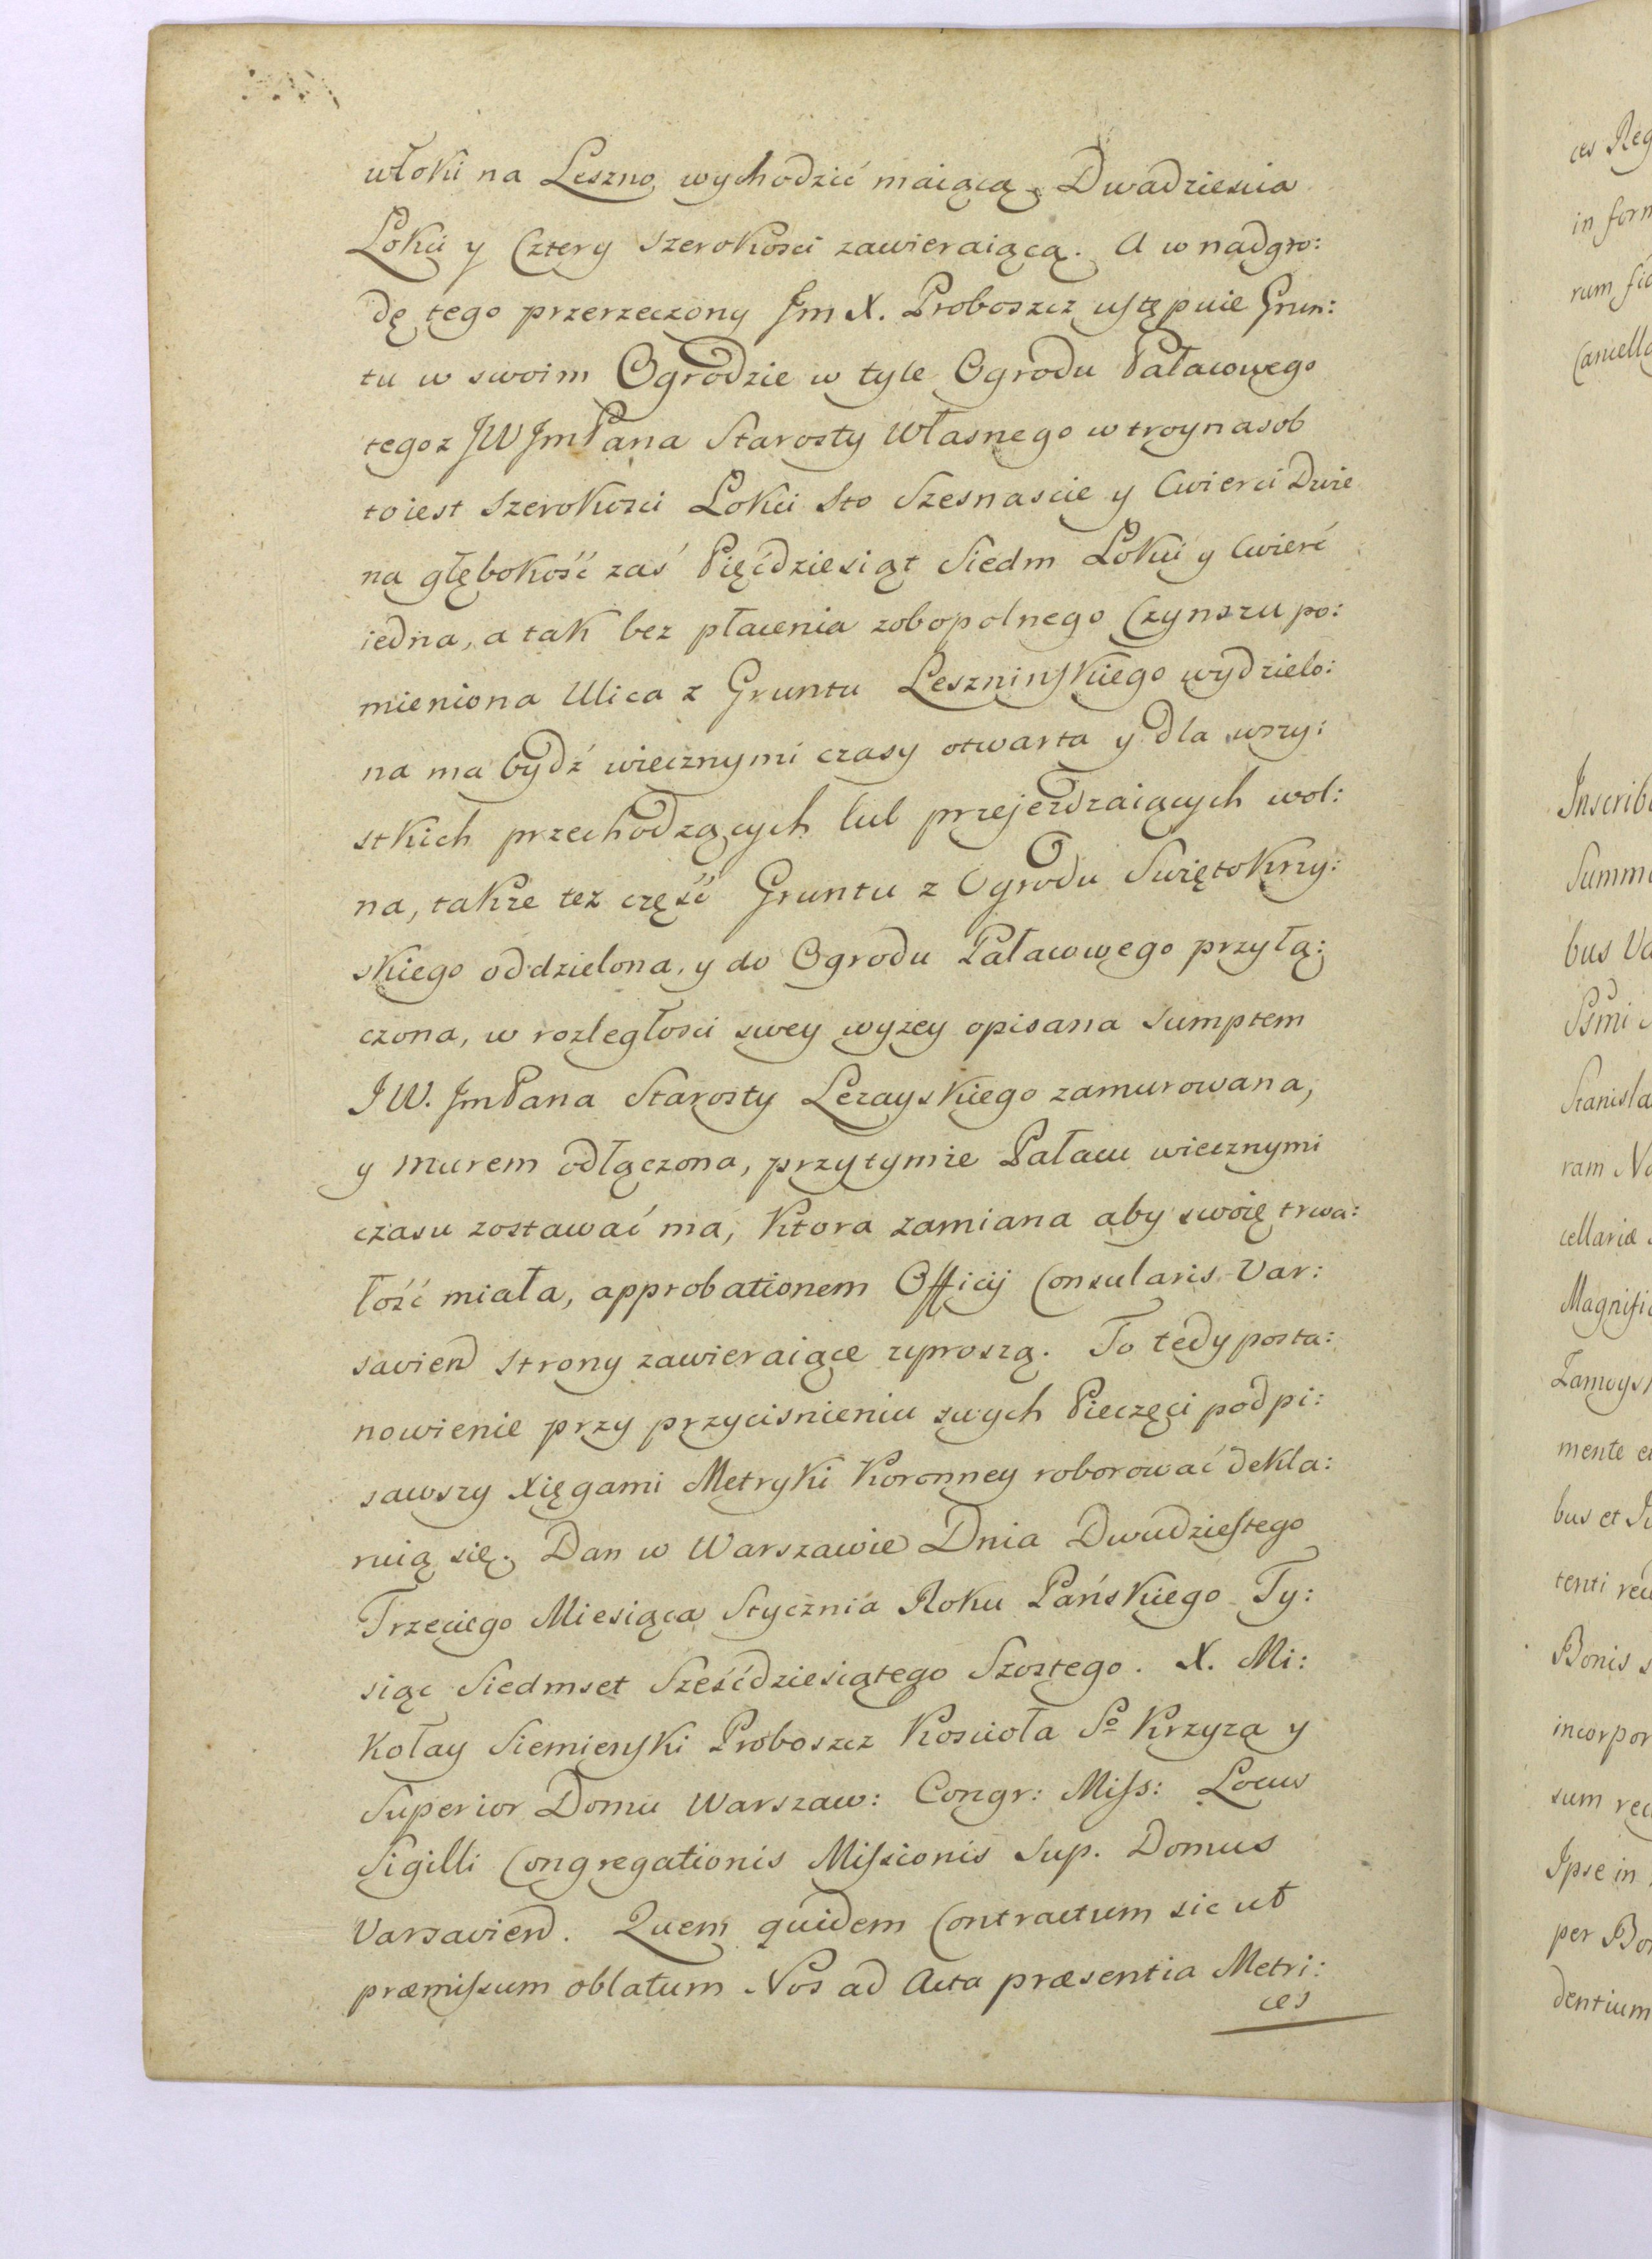 włoki na Leszno wychodzić maiącą, Dwadziescia
Łokci y Cztery szerokosci zawieraiącą. A w nadgro:
dę tego przerzeczony Jm X. Proboszcz ustępuie Grun:
tu w swoim Ogrodzie w tyle Ogrodu Pałacowego
tegoz JW JmPana Starosty własnego w troynasob
toiest szerokosci Łokci Sto Szesnascie y Cwierci Dwie
na głębokość zaś Pięćdziesiąt Siedm Łokci y Cwierć
iedna, a tak bez płacenia zobopolnego Czynszu po:
mieniona Ulica z Gruntu Leszninskiego wydzielo:
na ma bydź wiecznymi czasy otwarta y dla wszy:
stkich przechodzących lub przejezdzaiących wol:
na, także też część Gruntu z Ogrodu Swiętokrzy:
skiego oddzielona, y do Ogrodu Pałacowego przyłą:
czona, w rozległosci swey wyzey opisana sumptem
JW. JmPana Starosty Lezayskiego zamurowana,
y murem odłączona, przytymże Pałacu wiecznymi
czasu zostawać ma, Ktora zamiana aby swoię trwa:
łość miała, approbationem Officij Consularis Var:
savien strony zawieraiące uproszą. To tedy posta:
nowienie przy przycisnieniu swych Pieczęci podpi:
sawszy Xięgami Metryki Koronney roborować dekla:
ruią się. Dan w Warszawie Dnia Dwudziestego
Trzeciego Miesiąca Stycznia Roku Pańskiego Ty:
siąc Siedmset Sześćdziesiątego Szostego. X. Mi:
kołay Siemienski Proboszcz Koscioła Sº Krzyza y
Superior Domu Warszaw: Congr: Miss: Locus
Sigilli Congregationis Missionis Sup. Domus
Varsavien. Quem quidem Contractum sic ut
præmissum oblatum Nos ad Acta præsentia Metri:
ces
in form
Inscrib
bus Va
Stanisla
ram No
cellariæ
Magnific
Zamoys
mente e
bus et
tenti
Bonis s
incorpor
sum rec
Ipse in
per Bo
dentium